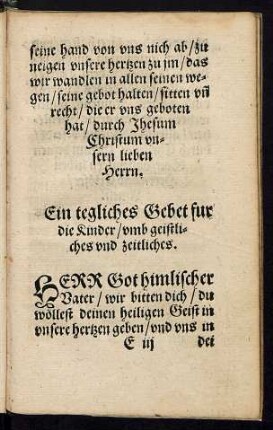 seine hand von vns nich ab/zu
neigen vnsere hertzen zu jm/das
wir wandlen in allen seinen we-
gen/seine gebot halten/sitten vñ
recht/die er vns geboten
hat/durch Jhesum
Christum vn-
sern lieben
Herrn.
Ein tegliches Gebet fur
die Kinder/vmb geistli-
ches vnd zeitliches.
HERR Got himlischer
Vater/wir bitten dich/du
wöllest deinen heiligen Geist in
vnsere hertzen geben/vnd vns in
E iij dei